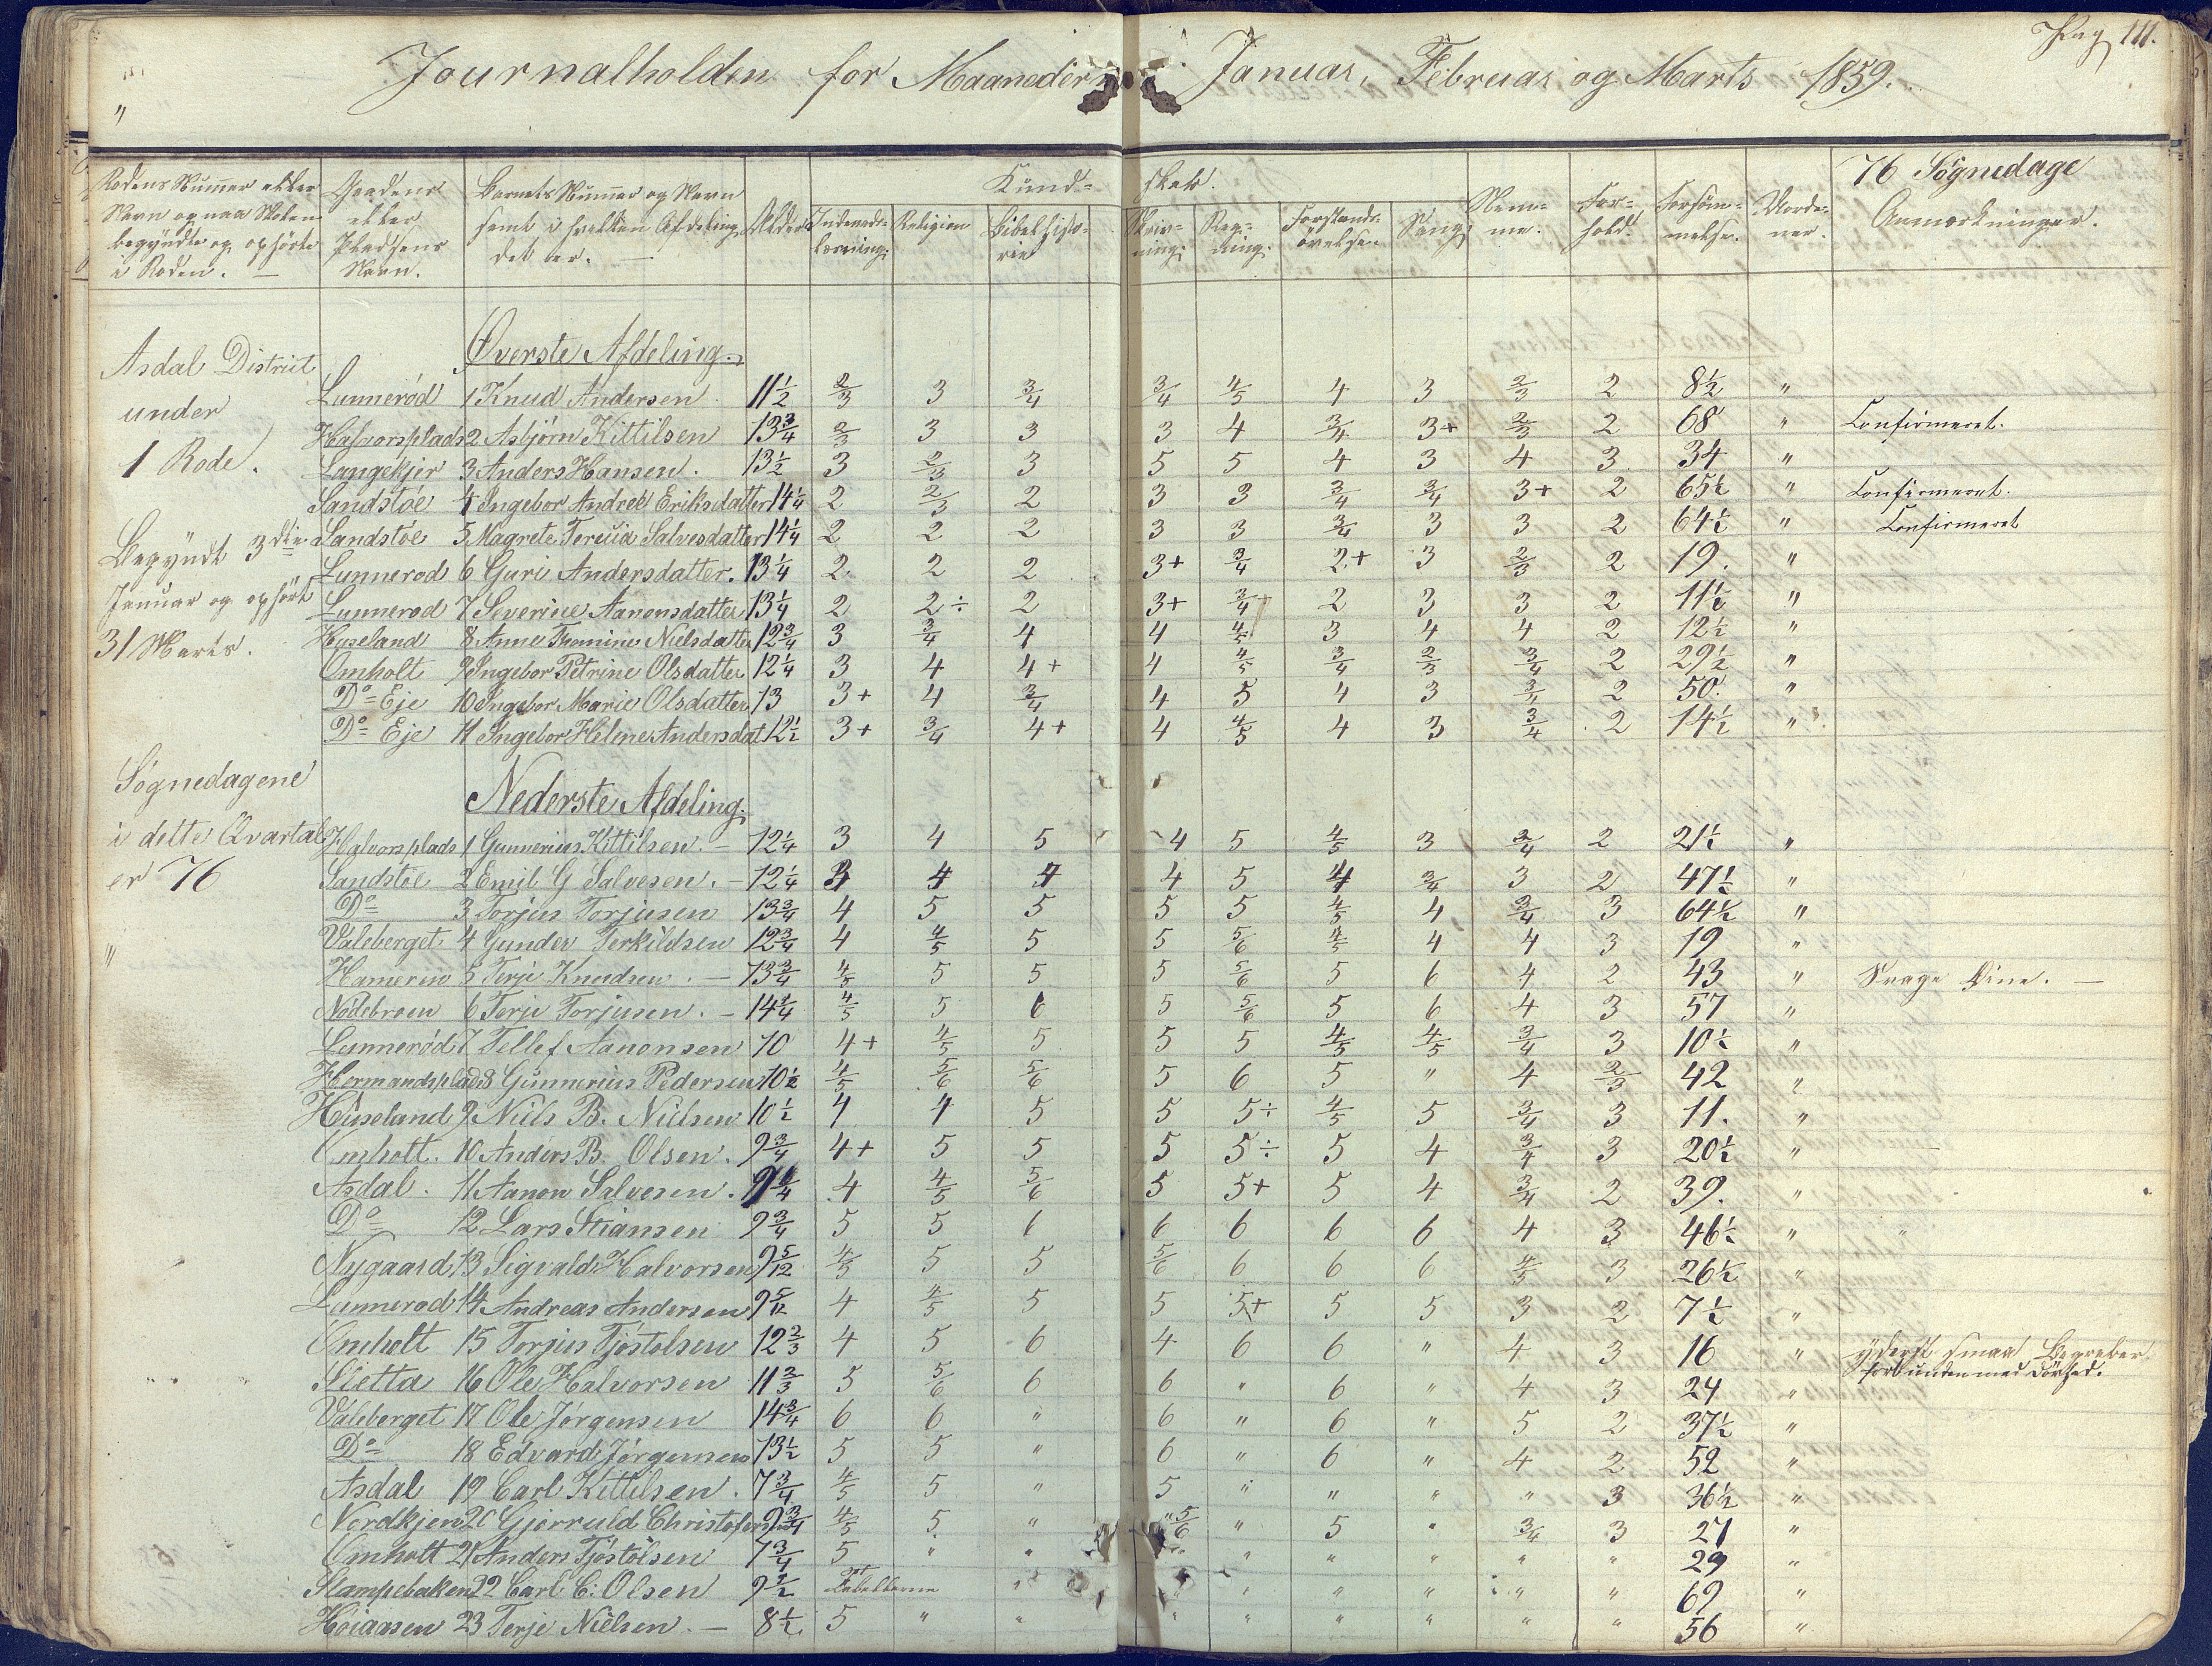 Pag 111.
Journalholden for Maanederne Januar, Februar og Marts 1859.
"
Rodens Nummer eller Navn og naar Skolen begyndte og ophørte i Roden. —
Gaardens eller Pladsens Navn.
Barnets Nummer og Navn samt i hvilken Afdeling det er. —
Alder
Kund= skab.
Indenads- læsning.
Religion
Bibelhisto- rie
Skriv- ning.
Reg- ning.
Forstands- øvelser
Sang
Nem- me.
For- hold.
Forsøm- melser.
76 Søgnedage
Anmærkninger.
Asdal District
under
1 Rode.
Begyndt 3die
Januar og ophørt
31 Marts.
Søgnedagene
i dette Qvartal
er 76
"
Øverste Afdeling.
Lunnerød 1 Knud Andersen 11½ 2/3 3 3/4 3/4 4/5 4 3 2/3 2 8½ "
Halvorsplads 2 Asbjørn Kittilsen 13¾ 2/3 3 3 3 4 3/4 3+ 2/3 2 68 " Confirmeret.
Langekjer 3 Anders Hansen. 13½ 3 2/3 3 5 5 4 3 4 3 34 "
Sandstøe 4 Ingebor Andree Eriksdatter 14¼ 2 2/3 2 3 3 3/4 3/4 3+ 2 65½ " Confirmeret.
Sandstøe 5 Magrete Tericia Salvesdatter 14¼ 2 2 2 3 3 3/4 3 3 2 64½ " Confirmeret
Lunnerod 6 Guri Andersdatter. 13¼ 2 2 2 3+ 3/4 2+ 3 2/3 2 19. "
Lunnerod 7 Severine Aanonsdatter 13¼ 2 2÷ 2 3+ 3/4+ 2 3 3 2 11½ "
Huseland 8 Anne Tromine Nielsdatter 12¾ 3 3/4 4 4 4/5 3 4 4 2 12½ "
Omholt 9 Ingebor Petrine Olsdatter 12¼ 3 4 4+ 4 4/5 3/4 2/3 3/4 2 29½ "
Do Eje 10 Ingebor Marie Olsdatter 13 3+ 4 3/4 4 5 4 3 3/4 2 50. "
Do Eje 11 Ingebor Heline Andersdat 12½ 3+ 3/4 4+ 4 4/5 4 3 3/4 2 14½ "
Nederste Afdeling.
Halvorsplads 1 Gunnerius Kittilsen. – 12¼ 3 4 5 4 5 4/5 3 3/4 2 21½ "
Sandstøe 2 Emil G Salvesen. – 12¼ 3 4 4 4 5 4 3/4 3 2 47½ "
Do 3 Torjus Torjusen 13¾ 4 5 5 5 5 4/5 4 3/4 3 64½ "
Valeberget 4 Gunder Terkildsen 12¾ 4 4/5 5 5 5/6 4/5 4 4 3 19 "
Hameren 5 Terje Knudsen. – 13¾ 4/5 5 5 5 5/6 5 6 4 2 43 " Svage Øine. —
Nødebroen 6 Terje Torjusen. – 14¼ 4/5 5 6 5 5/6 5 6 4 3 57 "
Lunnerød 7 Tellef Aanonsen 10 4+ 4/5 5 5 5 4/5 4/5 3/4 3 10½ "
Hermandsplads 8 Gunnerius Pedersen 10½ 4/5 5/6 5/6 5 6 5 " 4 2/3 42 "
Huseland 9 Niels B. Nielsen 10½ 4 4 5 5 5÷ 4/5 5 3/4 3 11. "
Omholt. 10 Anders B. Olsen. 9¾ 4+ 5 5 5 5÷ 5 4 3/4 3 20½ "
Asdal. 11 Aanon Salvesen. 4 4/5 5/6 5 5+ 5 4 3/4 2 39. "
Do 12 Lars Stiansen 9¾ 5 5 6 6 6 6 6 4 3 46½ " "
Nygaard 13 Sigvald Halvorsen 9 5/12 4/5 5 5 5/6 6 6 6 4/5 3 26½ "
Lunnerod 14 Andreas Andersen 9 5/12 4 4/5 5 5 5+ 5 5 3 2 7½ "
Omholt 15 Torjus Tjøstolsen 12 2/3 4 5 6 4 6 6 " 4 3 16 " yderst smaa Begreber forbunden med Dovhed.
Sletta 16 Ole Halvorsen 11 2/3 5 5/6 6 6 " 6 " 4 3 24 "
Valeberget 17 Ole Jørgensen 14¾ 6 6 " 6 " 6 " 5 2 37½ "
Do 18 Edvard Jørgensen 13½ 5 5 " 6 " 6 " 4 2 52 "
Asdal 19 Carl Kittilsen. 7¾ 4/5 5 " 5 " " " " 3 36½ "
Nordkjen 20 Gjerruld Christofersen 9¾ 4/5 5 " 5/6 " 5 " 3/4 3 27 "
Omholt 21 Anders Tjøstolsen 7¾ 5 " " " " " " " " 29 "
Stampebaken 22 Carl C: Olsen 9½ " " " " " " " 69 "
Høiaasen 23 Terje Nielsen. – 8½ 5 " " " " " " " " 56 "